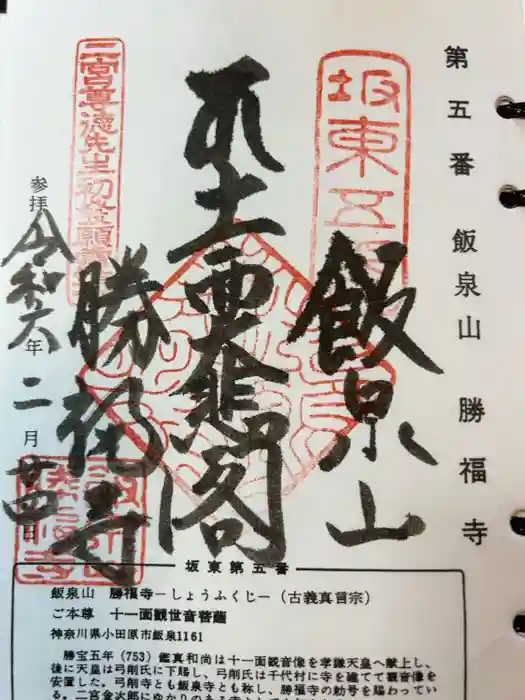 第五番 飯泉山 勝福寺
坂東五番
飯泉山
二宮尊徳先生初発願
勝福寺
参拝 令和六年二月廿四日
坂東第五番
飯泉山 勝福寺−しょうふくじ−（古義真言宗）
ご本尊 十一面観世音菩薩
神奈川県小田原市飯泉1161
勝宝五年（753）鑑真和尚は十一面観音像を孝謙天皇へ献上し、
後に天皇は弓削氏に下賜し、弓削氏は千代村に寺を建てて観音像を
安置した。弓削寺とも飯泉寺とも称し、勝福寺の称号を賜わってい